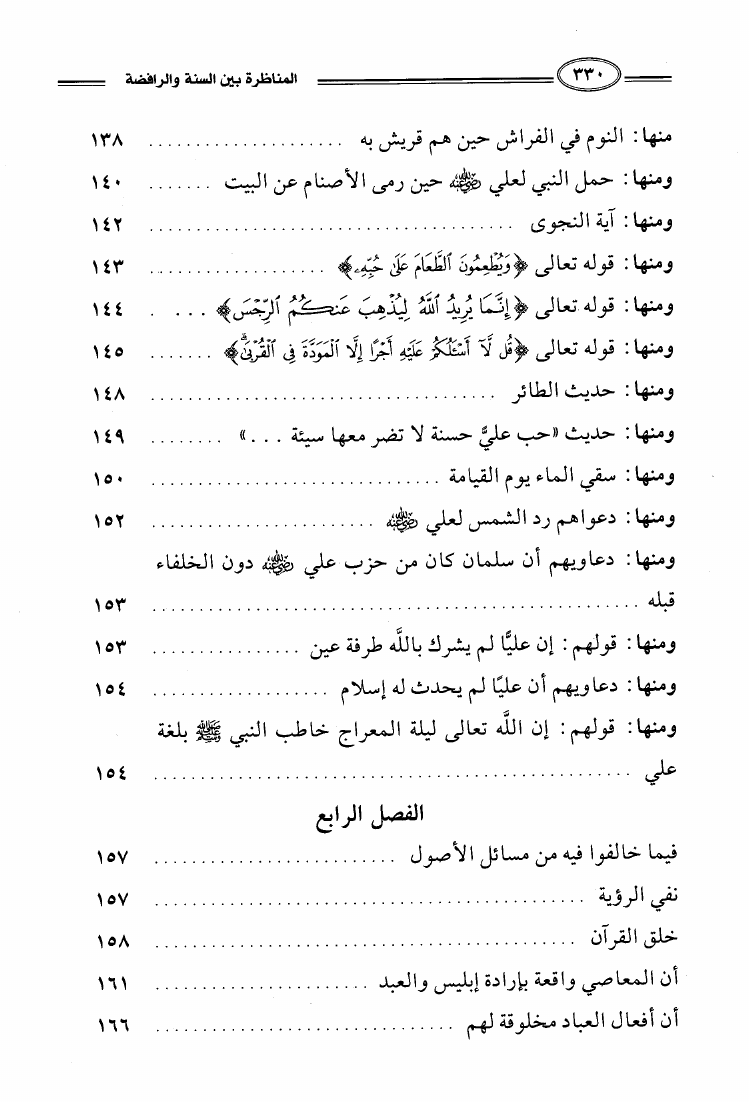 ٣٣٠ المناظرة بين السنة والرافضة
منها: النوم في الفراش حين هم قريش به ..................... ١٣٨
ومنها: حمل النبي لعلي رضي الله عنه حين رمى الأصنام عن البيت ....... ١٤٠
ومنها: آية النجوى ..................................... ١٤٢
ومنها: قوله تعالى ﴿وَيُطْعِمُونَ ٱلطَّعَامَ عَلَىٰ حُبِّهِۦ﴾ .................. ١٤٣
ومنها: قوله تعالى ﴿إِنَّمَا يُرِيدُ ٱللَّهُ لِيُذْهِبَ عَنكُمُ ٱلرِّجْسَ﴾ .... ١٤٤
ومنها: قوله تعالى ﴿قُل لَّآ أَسْـَٔلُكُمْ عَلَيْهِ أَجْرًا إِلَّا ٱلْمَوَدَّةَ فِى ٱلْقُرْبَىٰۗ﴾ ....... ١٤٥
ومنها: حديث الطائر ................................... ١٤٨
ومنها: حديث «حب عليٍّ حسنة لا تضر معها سيئة ...» ........ ١٤٩
ومنها: سقي الماء يوم القيامة ............................. ١٥٠
ومنها: دعواهم رد الشمس لعلي رضي الله عنه ....................... ١٥٢
ومنها: دعاويهم أن سلمان كان من حزب علي رضي الله عنه دون الخلفاء
قبله ................................................. ١٥٣
ومنها: قولهم: إن عليًّا لم يشرك باللَّه طرفة عين ............... ١٥٣
ومنها: دعاويهم أن عليًا لم يحدث له إسلام .................. ١٥٤
ومنها: قولهم: إن اللَّه تعالى ليلة المعراج خاطب النبي ﷺ بلغة
علي ................................................ ١٥٤
الفصل الرابع
فيما خالفوا فيه من مسائل الأصول ........................ ١٥٧
نفي الرؤية ........................................... ١٥٧
خلق القرآن .......................................... ١٥٨
أن المعاصي واقعة بإرادة إبليس والعبد ...................... ١٦١
أن أفعال العباد مخلوقة لهم .............................. ١٦٦